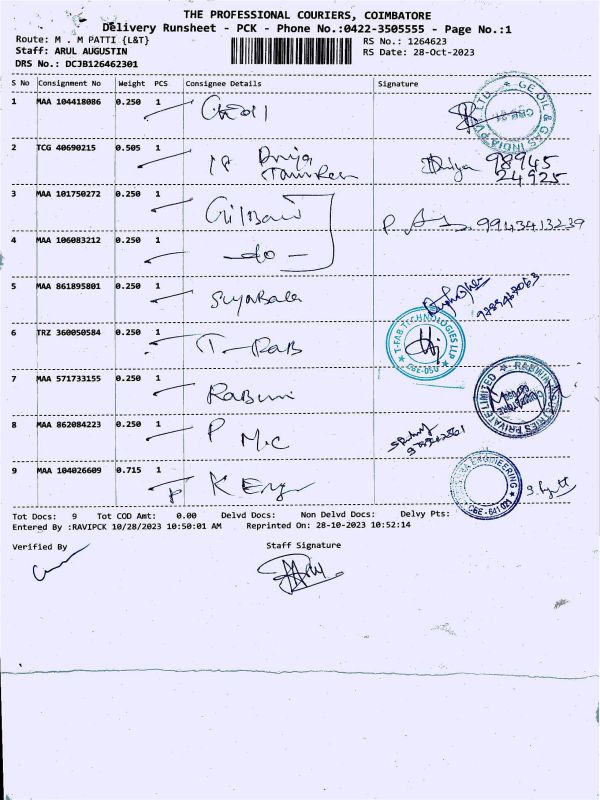 THE PROFESSIONAL COURIERS, COIMBATORE
Delivery Runsheet - PCK - Phone No.:0422-3505555 - Page No.:1
Route: M . M PATTI {L&T}
RS No.: 1264623
Staff: ARUL AUGUSTIN
RS Date: 28-Oct-2023
DRS No.: DCJB126462301
S No Consignment No Weight PCS Consignee Details Signature
1 MAA 104418086 0.250 1
GE OIL & GAS INDIA PVT LTD
2 TCG 40690215 0.505 1 Priya
98945
24925
3 MAA 101750272 0.250 1
9943413239
4 MAA 106083212 0.250 1 -do-
5 MAA 861895801 0.250 1 Suyabala
6 TRZ 360050584 0.250 1 T-FAB
T-FAB TECHNOLOGIES LLP
CBE-050
7 MAA 571733155 0.250 1 Rabwin
RABWIN INDUSTRIES PRIVATE LIMITED
8 MAA 862084223 0.250 1 P M.C
9 MAA 104026609 0.715 1 K Eng
ENGINEERING
CBE-641 021
Tot Docs: 9 Tot COD Amt: 0.00 Delvd Docs: Non Delvd Docs: Delvy Pts:
Entered By :RAVIPCK 10/28/2023 10:50:01 AM Reprinted On: 28-10-2023 10:52:14
Verified By Staff Signature